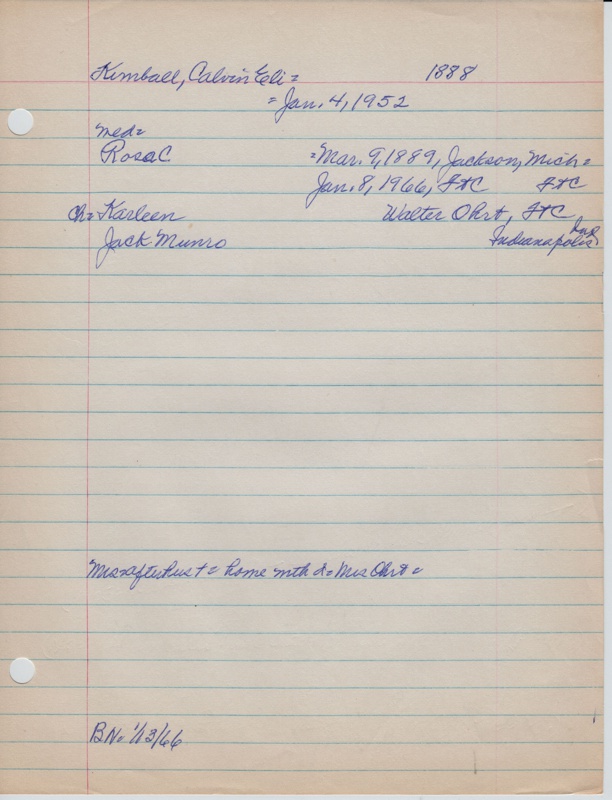 Kimball, Calvin Eli = 1888
= Jan. 4, 1952
med =
Rosa C = Mar. 9, 1889, Jackson, Mich =
Jan. 8, 1966, FtC FtC
Ch = Karleen Walter Ohrt, FtC
Jack Munro Indianapolis Ind
Mrs after hus t = home with d = Mrs Ohrt =
BN. 1/13/66